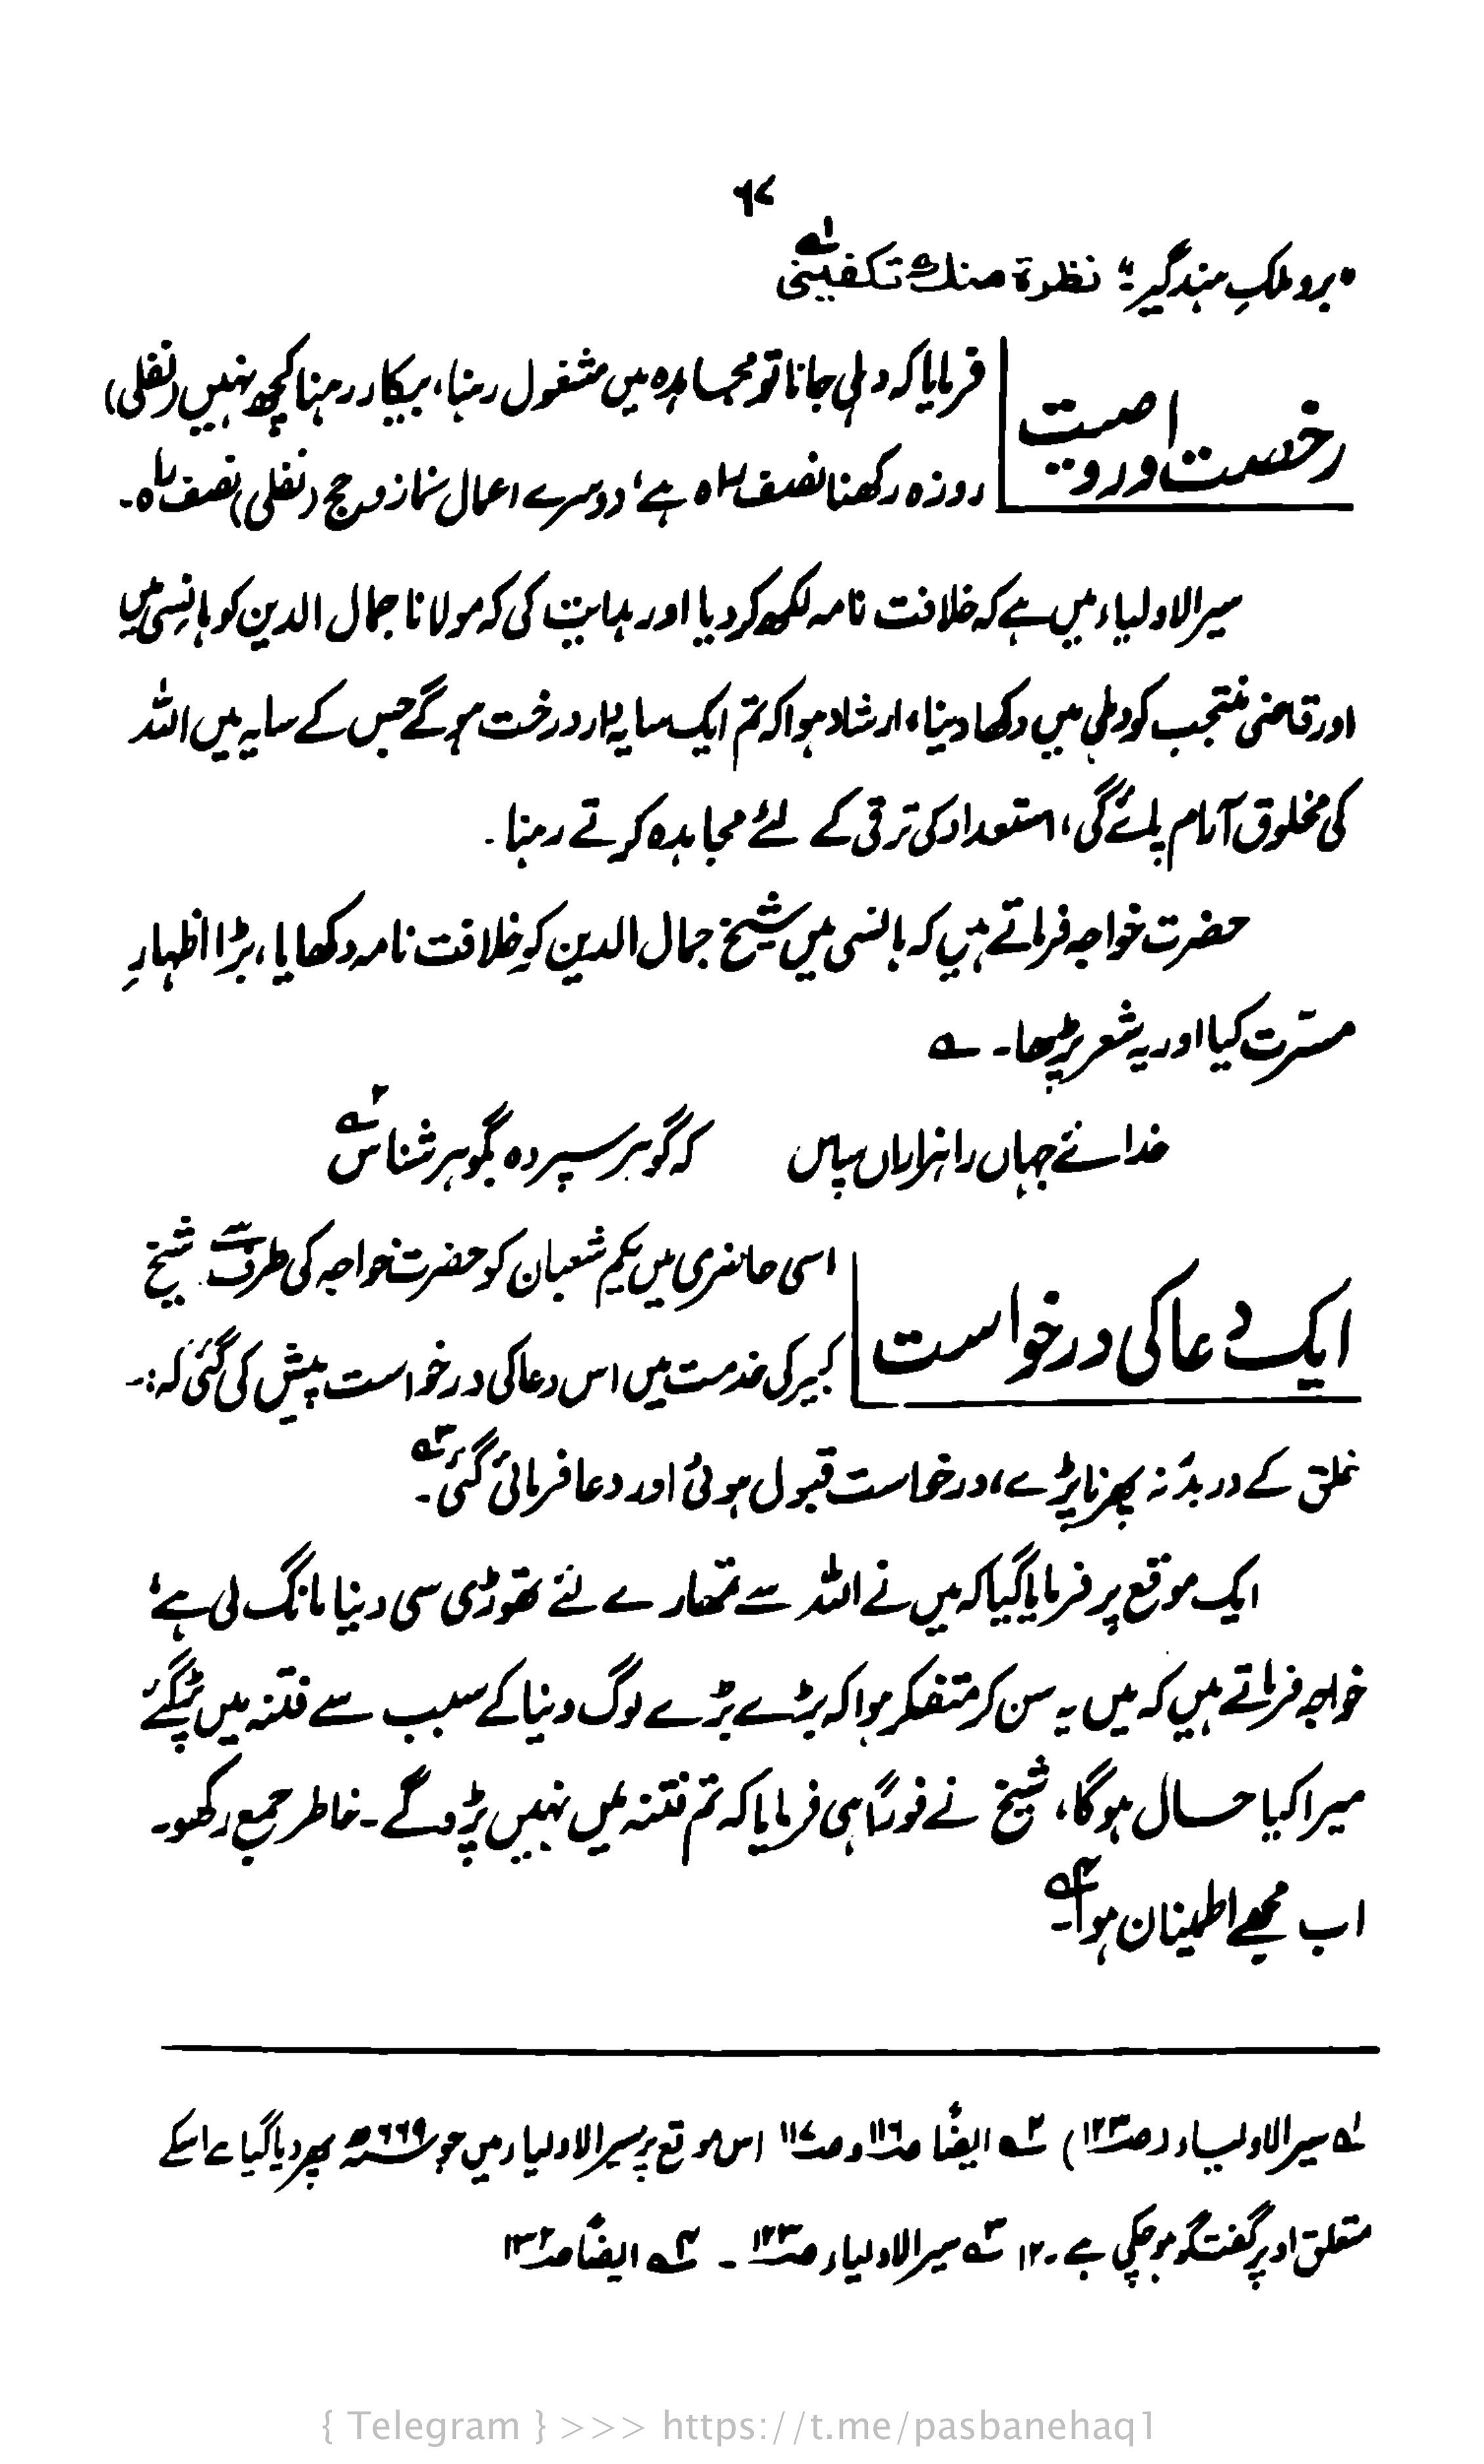 ۶۷
"برو ملکِ ہند گیر" نظرۃ منك تكفيني لہ
رخصت اور وصیت
فرمایا کہ دہلی جانا تو مجاہدہ میں مشغول رہنا، بیکار رہنا کچھ نہیں (نفلی)
روزہ رکھنا نصف راہ ہے، دوسرے اعمال نماز و حج (نفلی) نصف راہ۔
سیر الاولیاء میں ہے کہ خلافت نامہ لکھ کر دیا اور ہدایت کی کہ مولانا جمال الدین کو ہانسی میں
اور قاضی منتجب کو دہلی میں دکھا دینا، ارشاد ہوا کہ تم ایک سایہ دار درخت ہو گے جس کے سایہ میں اللہ
کی مخلوق آرام پائے گی، استعداد کی ترقی کے لئے مجاہدہ کرتے رہنا۔
حضرت خواجہ فرماتے ہیں کہ ہانسی میں شیخ جمال الدین کو خلافت نامہ دکھایا، بڑا اظہارِ
مسرّت کیا اور یہ شعر پڑھا۔ ؎
خدائے جہاں را ہزاراں سپاس کہ گوہر سپردہ بگوہر شناس ۲ہ
ایک دعا کی درخواست
اسی حاضری میں یکم شعبان کو حضرت خواجہ کی طرف سے شیخ
کبیر کی خدمت میں اس دعا کی درخواست پیش کی گئی کہ:۔
خلق کے در بدر نہ پھرنا پڑے، درخواست قبول ہوئی اور دعا فرمائی گئی۔ ۳ہ
ایک موقع پر فرمایا گیا کہ میں نے اللہ سے تمھارے لئے تھوڑی سی دنیا مانگ لی ہے،
خواجہ فرماتے ہیں کہ میں یہ سن کر متفکر ہوا کہ بڑے بڑے لوگ دنیا کے سبب سے فتنہ میں پڑ گئے
میرا کیا حال ہوگا، شیخ نے فوراً ہی فرمایا کہ تم فتنہ میں نہیں پڑو گے۔ خاطر جمع رکھو۔
اب مجھے اطمینان ہوا۔ ۴ہ
لہ سیر الاولیاء (ص۱۲۳) ۲ہ ایضاً ص۱۱۶ و ص۱۱۷ اس موقع پر سیر الاولیاء میں جو ۶۶۹ھ پھر دیا گیا ہے اسکے
متعلق اوپر گفتگو ہو چکی ہے۔ ۱۲ ۳ہ سیر الاولیاء ص۱۲۳ ۔ ۴ہ ایضاً ص۱۳۲
{ Telegram } >>> https://t.me/pasbanehaq1